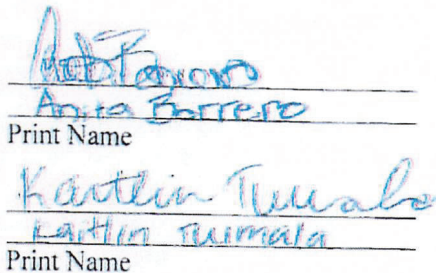 Anita Borrero
Print Name
Kaitlin Tuimala
Kaitlin Tuimala
Print Name